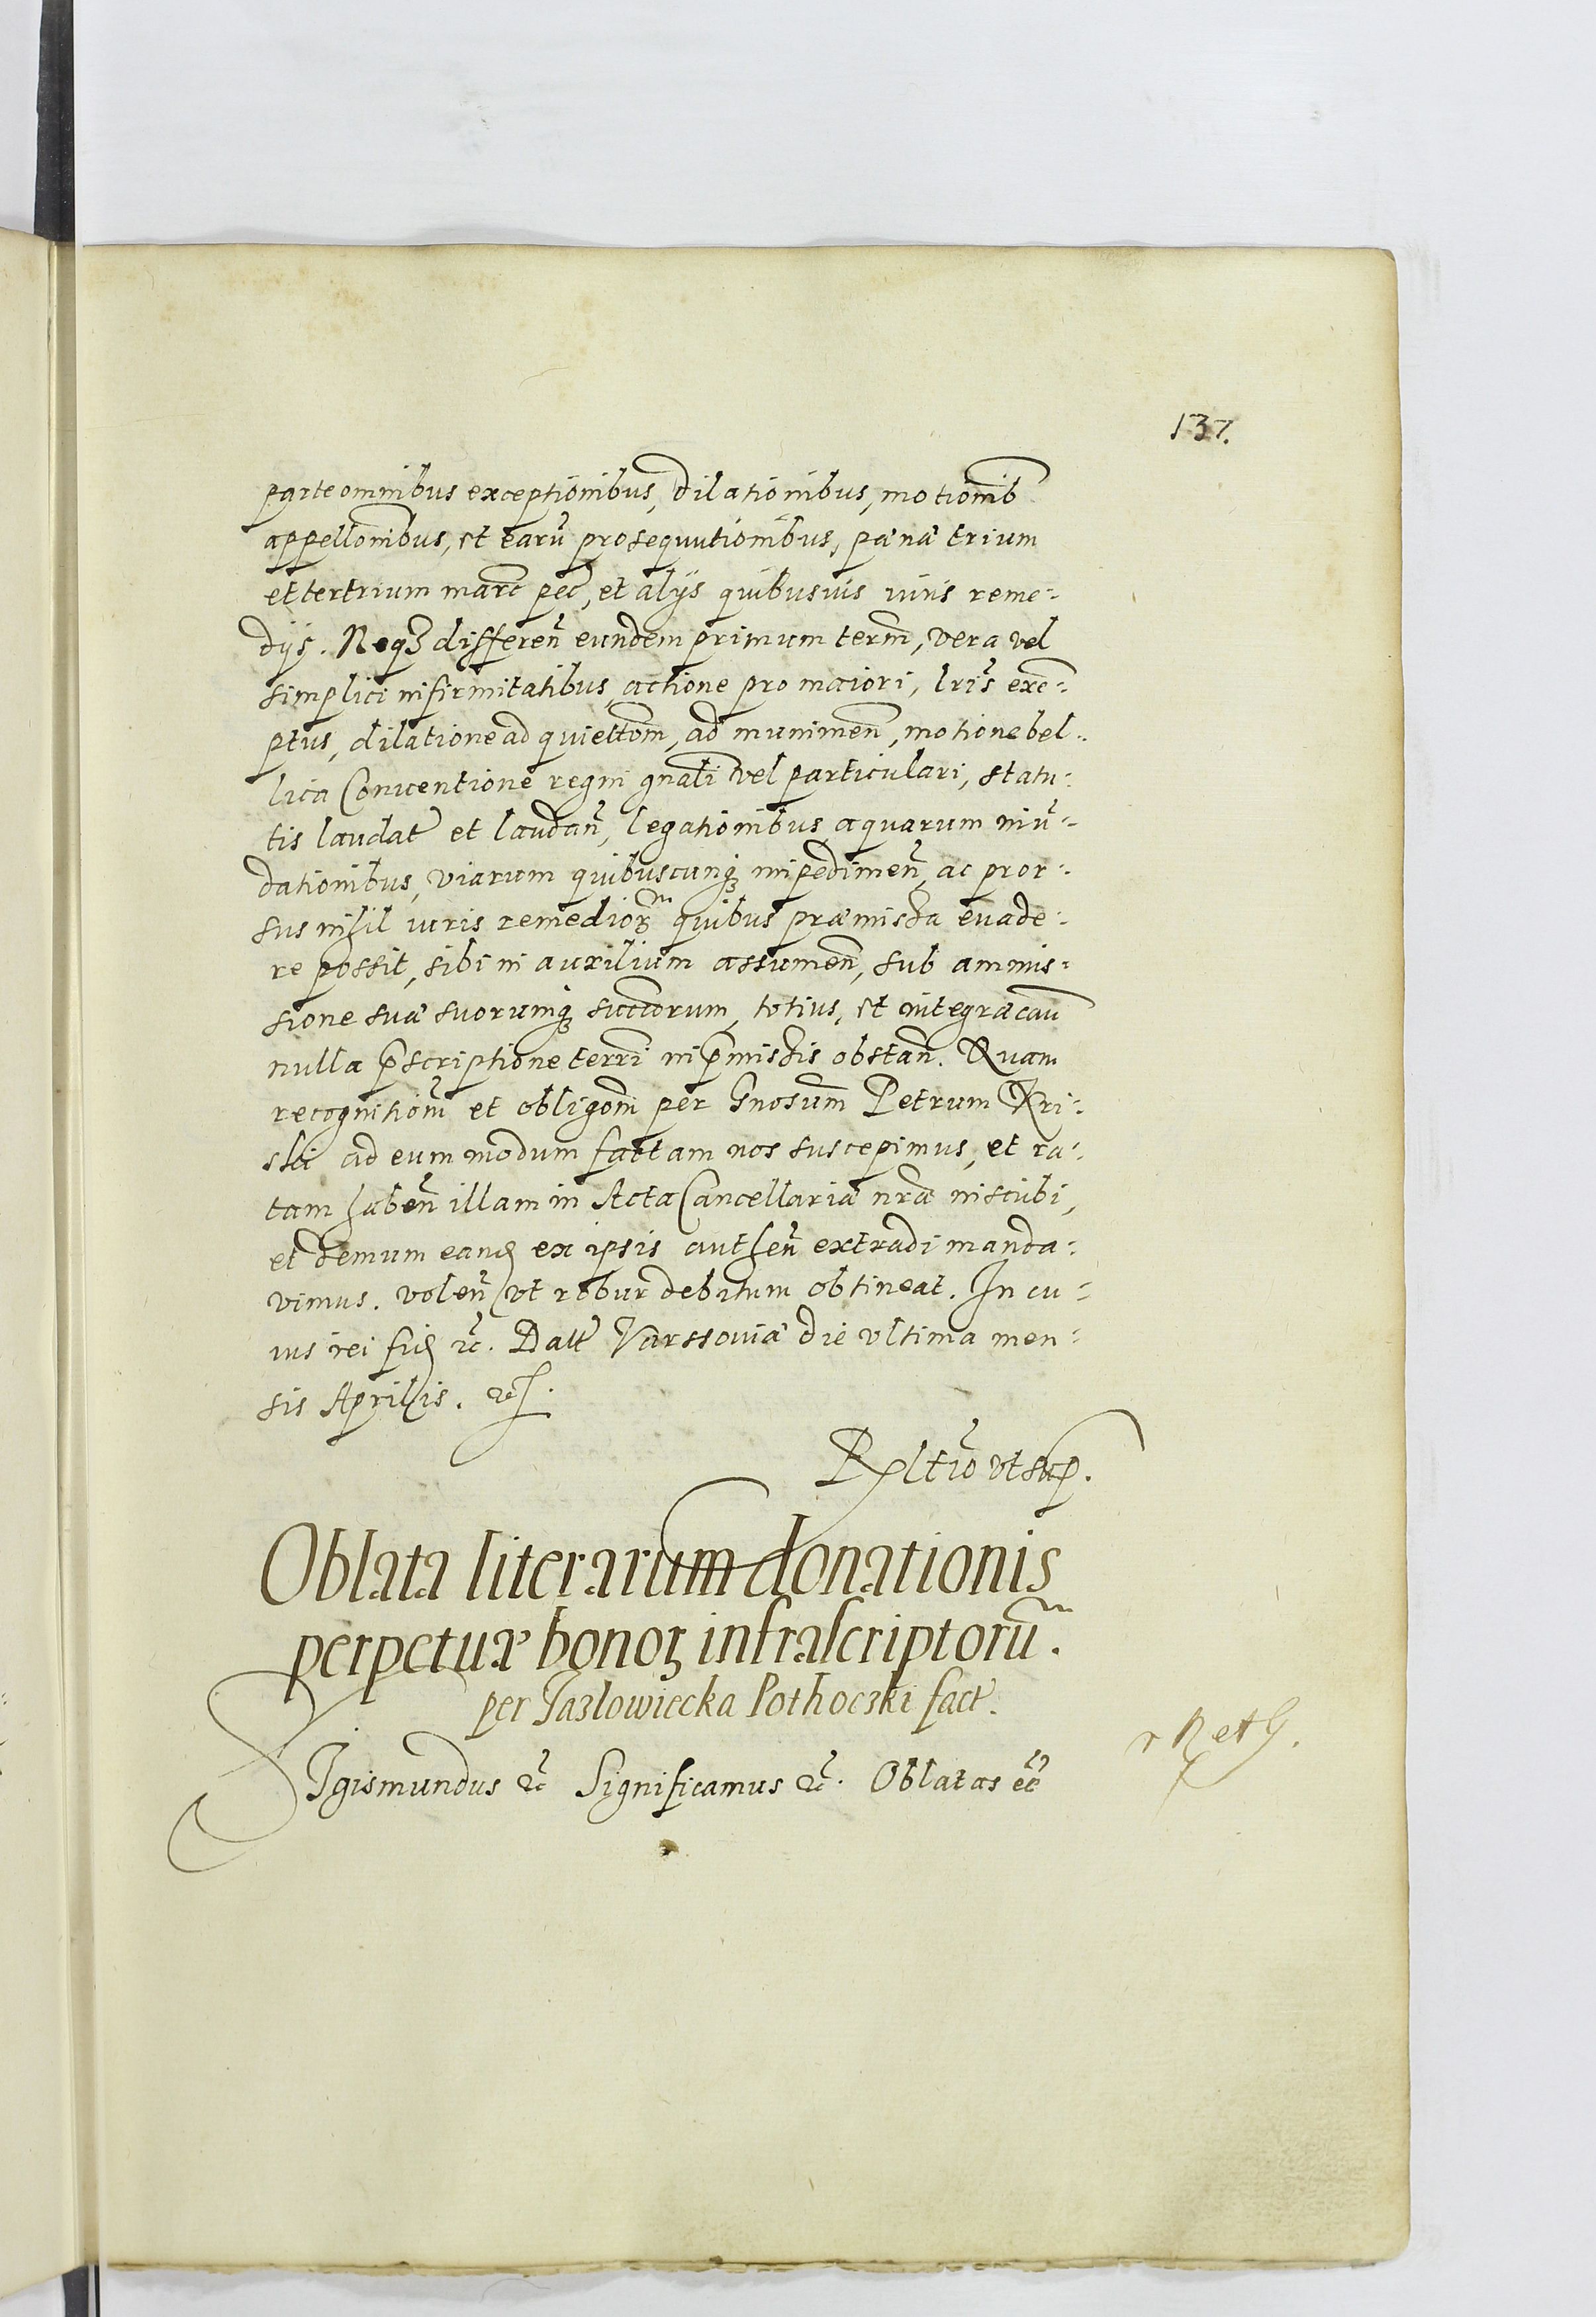 137.
parte omnibus exceptionibus, dilationibus, motionib
appellonibus, et earũ prosequutionibus, pænâ trium
et ter trium marc pec, et alijs quibusuis iuris reme⸗
dijs. Neqꝫ differeñ eundem primum term̃, vera vel
simplici infirmitatibus, actione pro maiori, lris exce⸗
ptus, dilatione ad quiettom̃, ad munimeñ, motione bel⸗
lica Conuentione regni gnali vel particulari, statu⸗
tis laudat̃ et laudañ, legationibus aquarum inũ⸗
dationibus, viarum quibuscunqꝫ impedimeñ, ac pror⸗
sus nihil iuris remedioꝝ quibus præmissa euade⸗
re possit, sibi in auxilium assumeñ, sub ammis⸗
sione suâ suorumqꝫ succorum, totius, et integræ cau
nulla p̃scriptione terri in p̃missis obstañ. Quam
recognitiom̃ et obligom̃ per Gnosum Petrum Kri⸗
ski ad eum modum factam nos suscepimus, et ra⸗
tam habeñ illam in Acta Cancellariæ nræ inscribi,
et demum eand ex ipsis autheñ extradi manda⸗
vimus. voleñ vt robur debitum obtineat. In cu⸗
ius rei fid ꝛc̃. Datt Varssouiæ die vltima men⸗
sis Aprilis. ꝛc.
Rltio vt sup.
Oblata literarum donationis
perpetuæ bonoꝝ infrascriptorũ.
per Jazlowiecka Pothoczki fact.
SIgismundus ꝛc̃ Significamus ꝛc̃. Oblatas ec̃